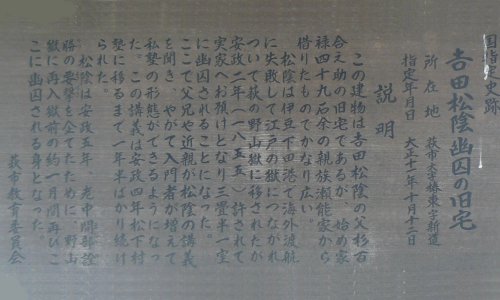 国指定史跡
吉田松陰幽囚の旧宅
所在地 萩市大字椿東字新道
指定年月日 大正十一年十月十二日
説明
この建物は吉田松陰の父杉百
合之助の旧宅であるが 始め家
禄四十九石余の親族瀬能家から
借りたものでかなり広い
松陰は伊豆下田港で海外渡航
に失敗して江戸の獄につながれ
ついて萩の野山獄に移されたが
安政二年(一八五五)許されて
実家へお預けとなり三畳半一室
に幽囚されることになった。
ここで父兄や近親が松陰の講義
を聞き、やがて入門者が増えて
私塾の形態ができるようになっ
た。この講義は安政四年松下村
塾に移るまで一年半ばかり続け
られた。
松陰は安政五年 老中間部詮
勝の要撃を企てたために 野山
獄に再入獄前の約一月間再びこ
こに幽囚される身となった。
萩市教育委員会